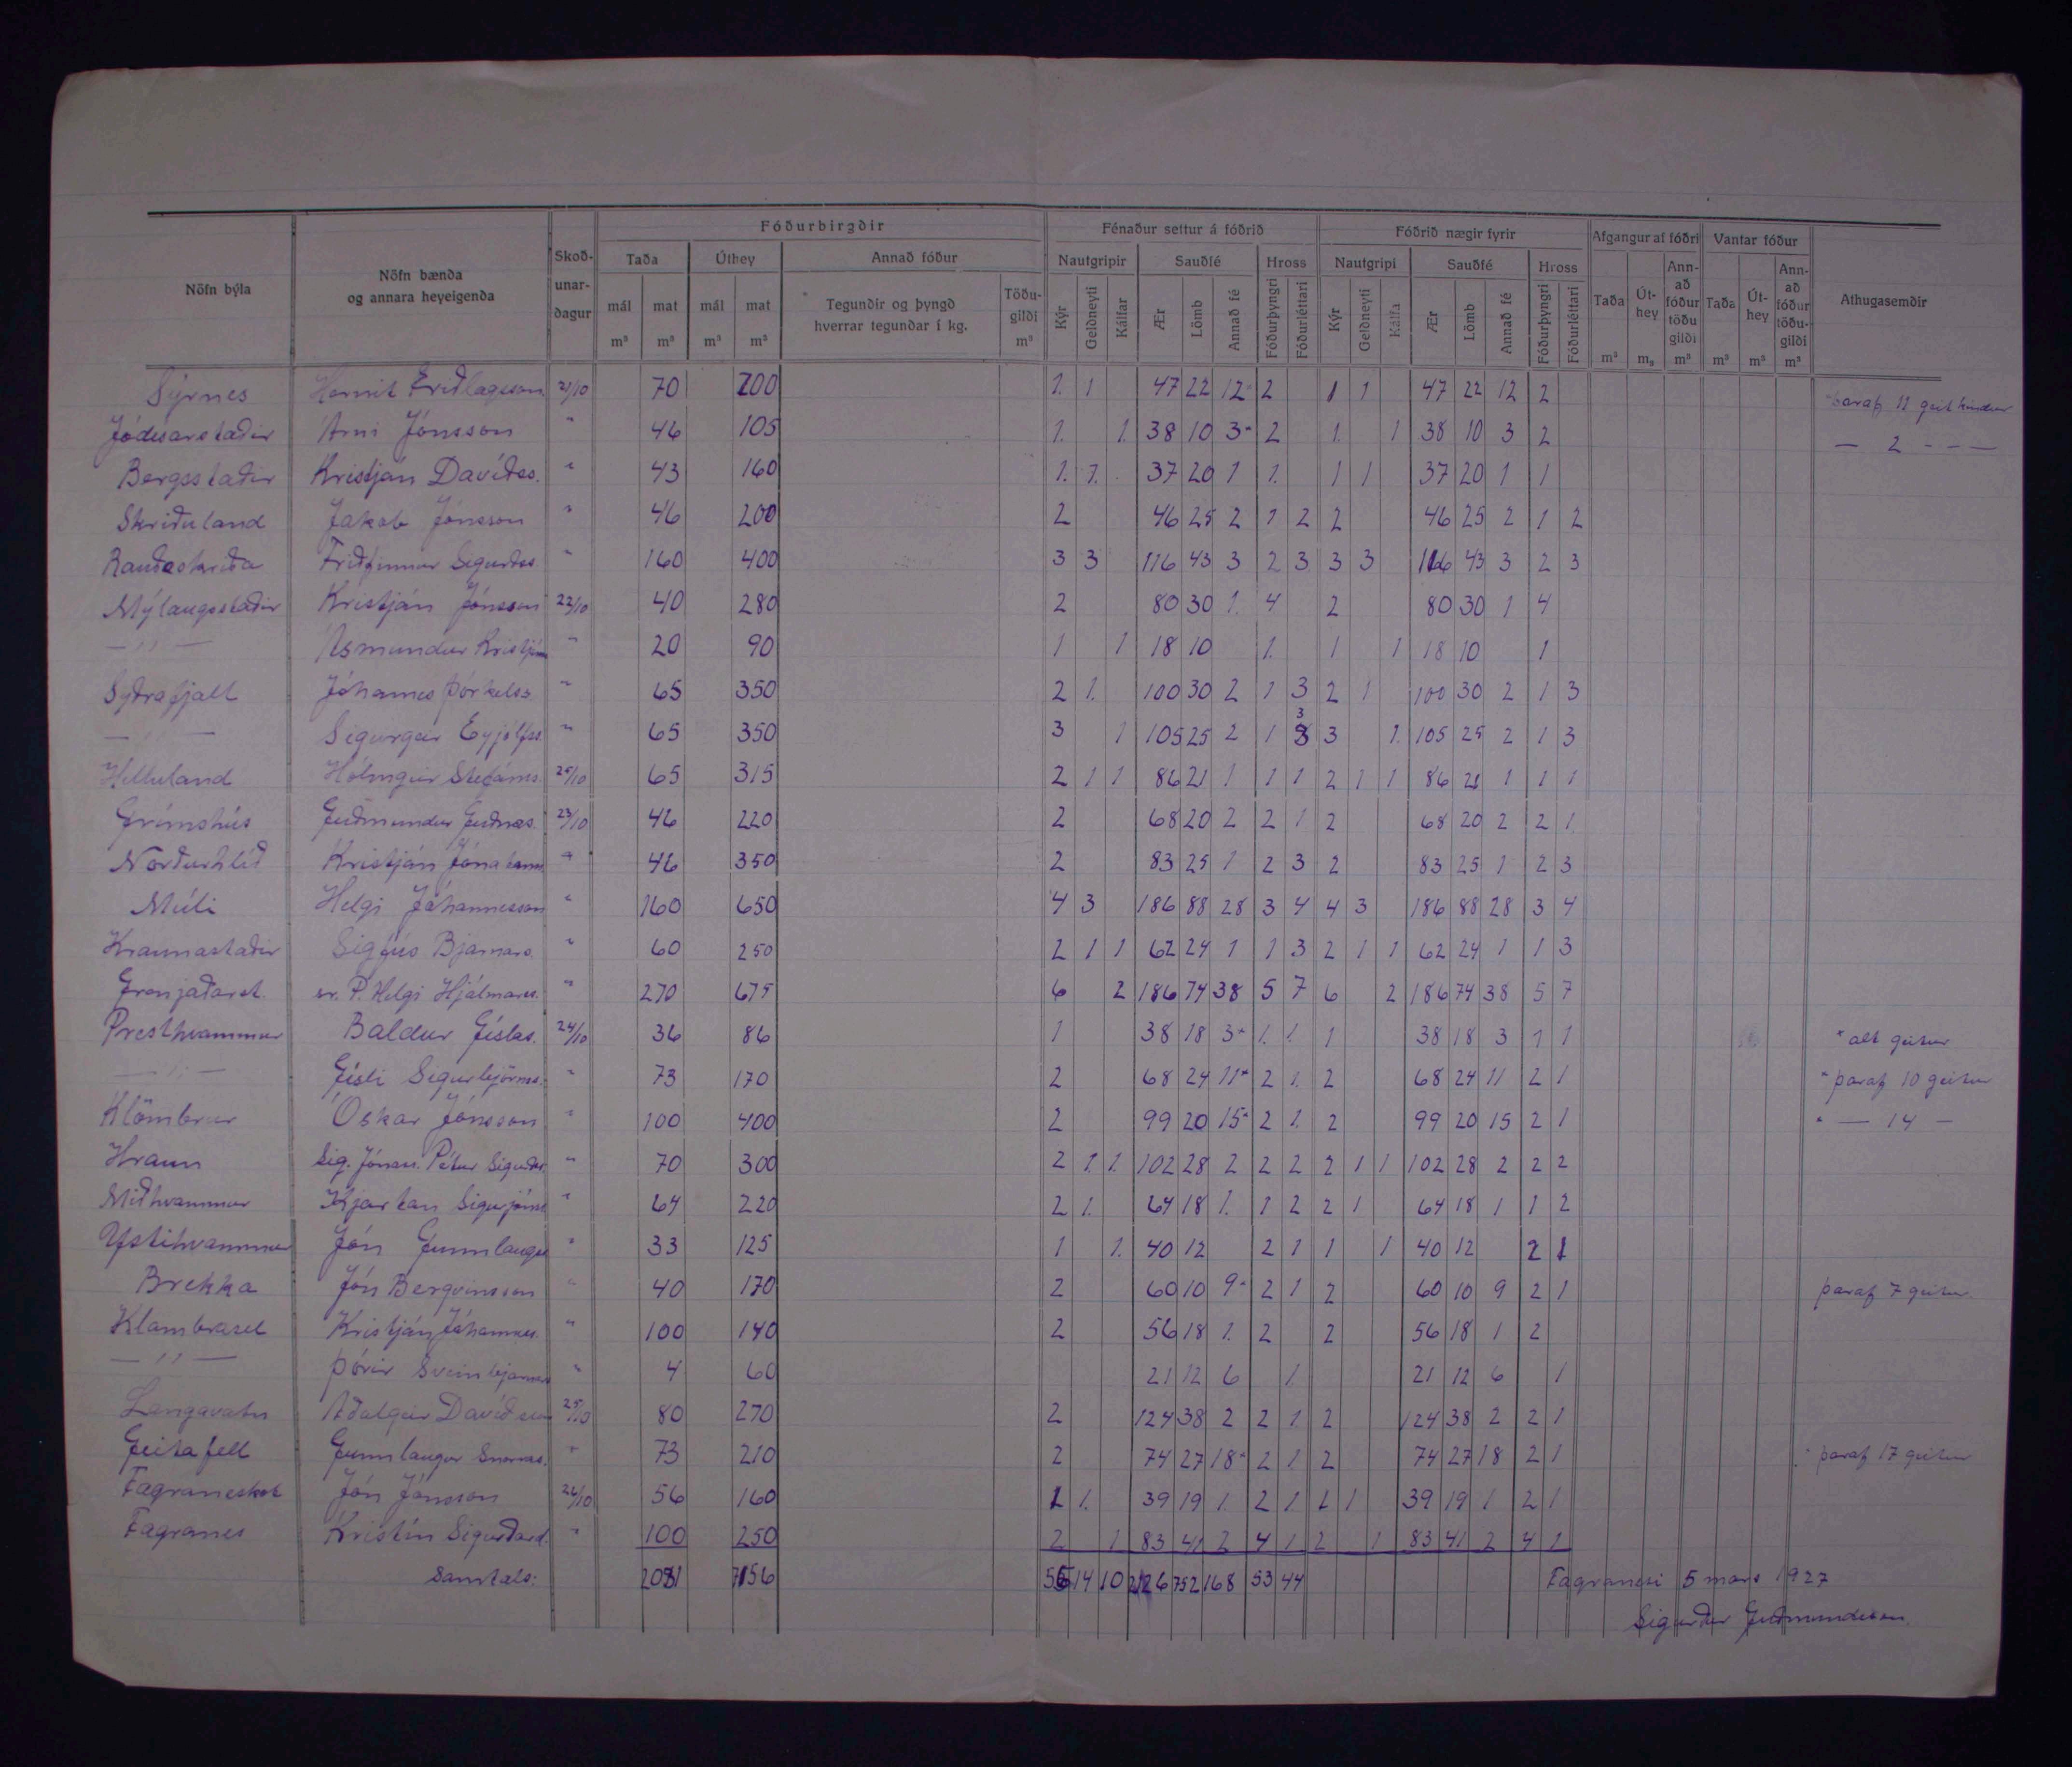 Nöfn býla | Nöfn bænda og annara heyeigenda | Skoðunardagur | Fóðurbirgðir | Fénaður settur á fóðrið | Fóðrið nægir fyrir | Afgangur af fóðri | Vantar fóður | Athugasemdir
Taða | Úthey | Annað fóður | Nautgripir | Sauðfé | Hross | Nautgripi | Sauðfé | Hross
mál m³ | mat m³ | mál m³ | mat m³ | Tegundir og þyngd hverrar tegundar í kg. | Töðugildi m³ | Kýr | Geldneyti | Kálfar | Ær | Lömb | Annað fé | Fóðurþyngri | Fóðurléttari | Kýr | Geldneyti | Kálfa | Ær | Lömb | Annað fé | Fóðurþyngri | Fóðurléttari | Taða m³ | Úthey m₃ | Annað fóður töðugildi m³ | Taða m³ | Úthey m³ | Annað fóður töðugildi m³
Sýrnes | 21/10 | 70 | 200 | 1. 1 | 47 22 12" | 2 | 1 1 | 47 22 12 | 2 | þaraf 11 geitkindur
Jódísarstaðir | Árni Jónsson | " | 46 | 105 | 1. 1. | 38 10 3" | 2 | 1. 1 | 38 10 3 | 2 | — 2 - - -
Bergsstaðir | Kristján Davíðss. | " | 43 | 160 | 1. 1. | 37 20 1 | 1. | 1 1 | 37 20 1 | 1
Skriðuland | Jakob Jónsson | " | 46 | 200 | 2 | 46 25 2 | 1 2 | 2 | 46 25 2 | 1 2
Rauðaskriða | Friðfinnur Sigurðss | " | 160 | 400 | 3 3 | 116 43 3 | 2 3 | 3 3 | 116 43 3 | 2 3
Mýlaugsstaðir | Kristján Jónsson | 22/10 | 40 | 280 | 2 | 80 30 1. | 4 | 2 | 80 30 1 | 4
— " — | Ásmundur Kristjáns | " | 20 | 90 | 1 1 | 18 10 | 1. | 1 1 | 18 10 | 1
Syðrafjall | Jóhannes Þórkelss. | " | 65 | 350 | 2 1. | 100 30 2 | 1 3 | 2 1 | 100 30 2 | 1 3
— " — | Sigurgeir Eyjólfss. | " | 65 | 350 | 3 1 | 105 25 2 | 1 3 | 3 1. | 105 25 2 | 1 3
Helluland | Hólmgeir Stefáns. | 25/10 | 65 | 315 | 2 1 1 | 86 21 1 | 1 1 | 2 1 1 | 86 21 1 | 1 1
Grímshús | Guðmundur Guðnas. | 23/10 | 46 | 220 | 2 | 68 20 2 | 2 1 | 2 | 68 20 2 | 2 1
Norðurhlíð | Kristján Jónatans | " | 46 | 350 | 2 | 83 25 1 | 2 3 | 2 | 83 25 1 | 2 3
Múli | Helgi Jóhannesson | " | 160 | 650 | 4 3 | 186 88 28 | 3 4 | 4 3 | 186 88 28 | 3 4
Kraunastaðir | Sigfús Bjarnars. | " | 60 | 250 | 2 1 1 | 62 24 1 | 1 3 | 2 1 1 | 62 24 1 | 1 3
Grenjaðarst. | sr. P. Helgi Hjálmars. | " | 270 | 675 | 6 2 | 186 74 38 | 5 7 | 6 2 | 186 74 38 | 5 7
Presthvammur | Baldur Gíslas. | 24/10 | 36 | 86 | 1 | 38 18 3" | 1. 1. | 1 | 38 18 3 | 1 1 | " alt geitur
— " — | Gísli Sigurbjörnss. | " | 73 | 170 | 2 | 68 24 11" | 2 1. | 2 | 68 24 11 | 2 1 | " þaraf 10 geitur
Klömbrur | Óskar Jónsson | " | 100 | 400 | 2 | 99 20 15" | 2 1. | 2 | 99 20 15 | 2 1 | " — 14 —
Hraun | Sig. Jónass. Pétur Sigurðss | " | 70 | 300 | 2 1. 1. | 102 28 2 | 2 2 | 2 1 1 | 102 28 2 | 2 2
Miðhvammur | Kjartan Sigurjóns | " | 64 | 220 | 2 1. | 64 18 1. | 1 2 | 2 1 | 64 18 1 | 1 2
Ystihvammur | Jón Gunnlaugs | " | 33 | 125 | 1 1. | 40 12 | 2 1 | 1 1 | 40 12 | 2 1
Brekka | Jón Bergvinsson | " | 40 | 170 | 2 | 60 10 9" | 2 1 | 2 | 60 10 9 | 2 1 | þaraf 7 geitur.
Klambrasel | Kristján Jóhannes. | " | 100 | 140 | 2 | 56 18 1. | 2 | 2 | 56 18 1 | 2
— " — | Þórir Sveinbjarnars | " | 4 | 60 | 21 12 6 | 1 | 21 12 6 | 1
Langavatn | Aðalgeir Davíðsson | 25/10 | 80 | 270 | 2 | 124 38 2 | 2 1. | 2 | 124 38 2 | 2 1
Geitafell | Gunnlaugur Snorras. | " | 73 | 210 | 2 | 74 27 18" | 2 1 | 2 | 74 27 18 | 2 1 | " þaraf 17 geitur
Fagraneskot | Jón Jónsson | 26/10 | 56 | 160 | 1 1. | 39 19 1. | 2 1 | 1 1 | 39 19 1 | 2 1
Fagranes | Kristín Sigurðard. | " | 100 | 250 | 2 1 | 83 41 2 | 4 1 | 2 1 | 83 41 2 | 4 1
Samtals: | 2031 | 7156 | 56 14 10 | 2126 752 168 | 53 44
Fagranesi 5 mars 1927
Sigurður Guðmundsson.